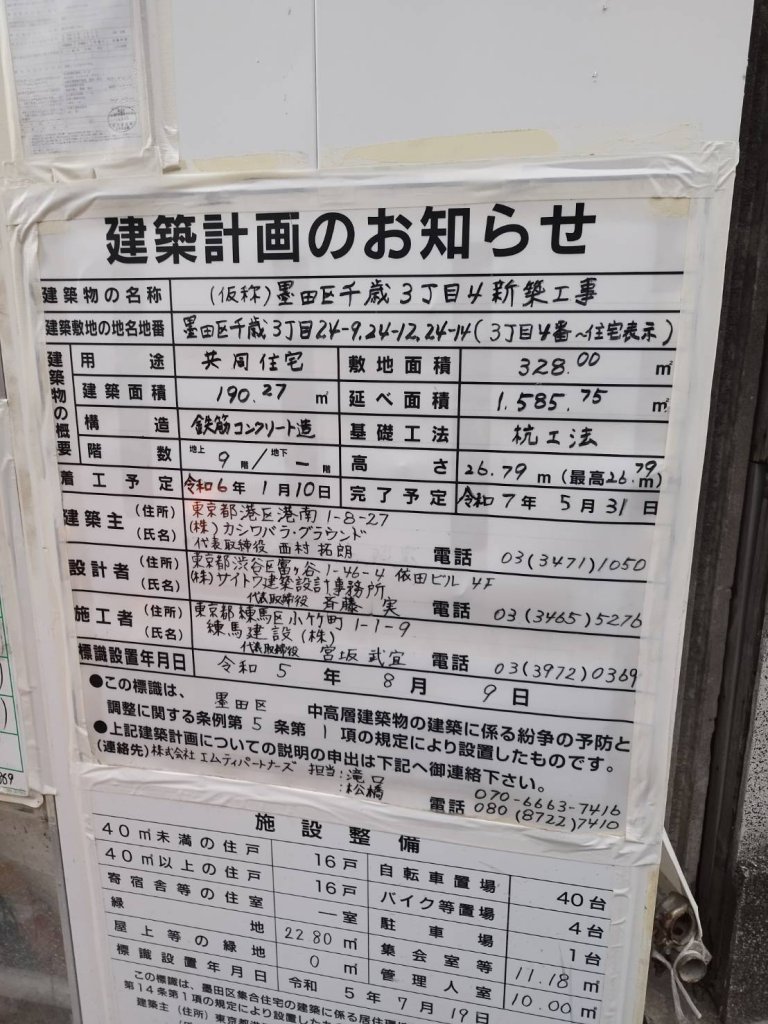 建築計画のお知らせ
建築物の名称 (仮称)墨田区千歳3丁目4新築工事
建築敷地の地名地番 墨田区千歳3丁目24-9,24-12,24-14(3丁目4番~住宅表示)
建築物の概要
用途 共同住宅 敷地面積 328.00 ㎡
建築面積 190.27 ㎡ 延べ面積 1,585.75 ㎡
構造 鉄筋コンクリート造 基礎工法 杭工法
階数 地上9階/地下一階 高さ 26.79 m (最高26.79m)
着工予定 令和6年1月10日 完了予定 令和7年5月31日
建築主 (住所) 東京都港区港南1-8-27
(氏名) (株)カシワバラ・グラウンド
代表取締役 西村拓朗 電話 03(3471)1050
設計者 (住所) 東京都渋谷区富ヶ谷1-46-4 依田ビル4F
(氏名) (株)サイトウ建築設計事務所
代表取締役 斉藤 実 電話 03(3465)5276
施工者 (住所) 東京都練馬区小竹町1-1-9
(氏名) 練馬建設(株)
代表取締役 宮坂武宜 電話 03(3972)0369
標識設置年月日 令和5年8月9日
●この標識は、墨田区 中高層建築物の建築に係る紛争の予防と
調整に関する条例第5条第1項の規定により設置したものです。
●上記建築計画についての説明の申出は下記へ御連絡下さい。
(連絡先)株式会社エムティパートナーズ 担当:滝口
:松橋
070-6663-7416
電話 080(8722)7410
施設整備
40㎡未満の住戸 16戸 自転車置場 40台
40㎡以上の住戸 16戸 バイク等置場 4台
寄宿舎等の住室 一室 駐車場 1台
緑地 22.80㎡ 集会室等 11.18㎡
屋上等の緑地 0㎡ 管理人室 10.00㎡
標識設置年月日 令和5年7月19日
この標識は、墨田区集合住宅の建築に係る居住環
第14条第1項の規定により設置した
建築主 (住所)東京都港